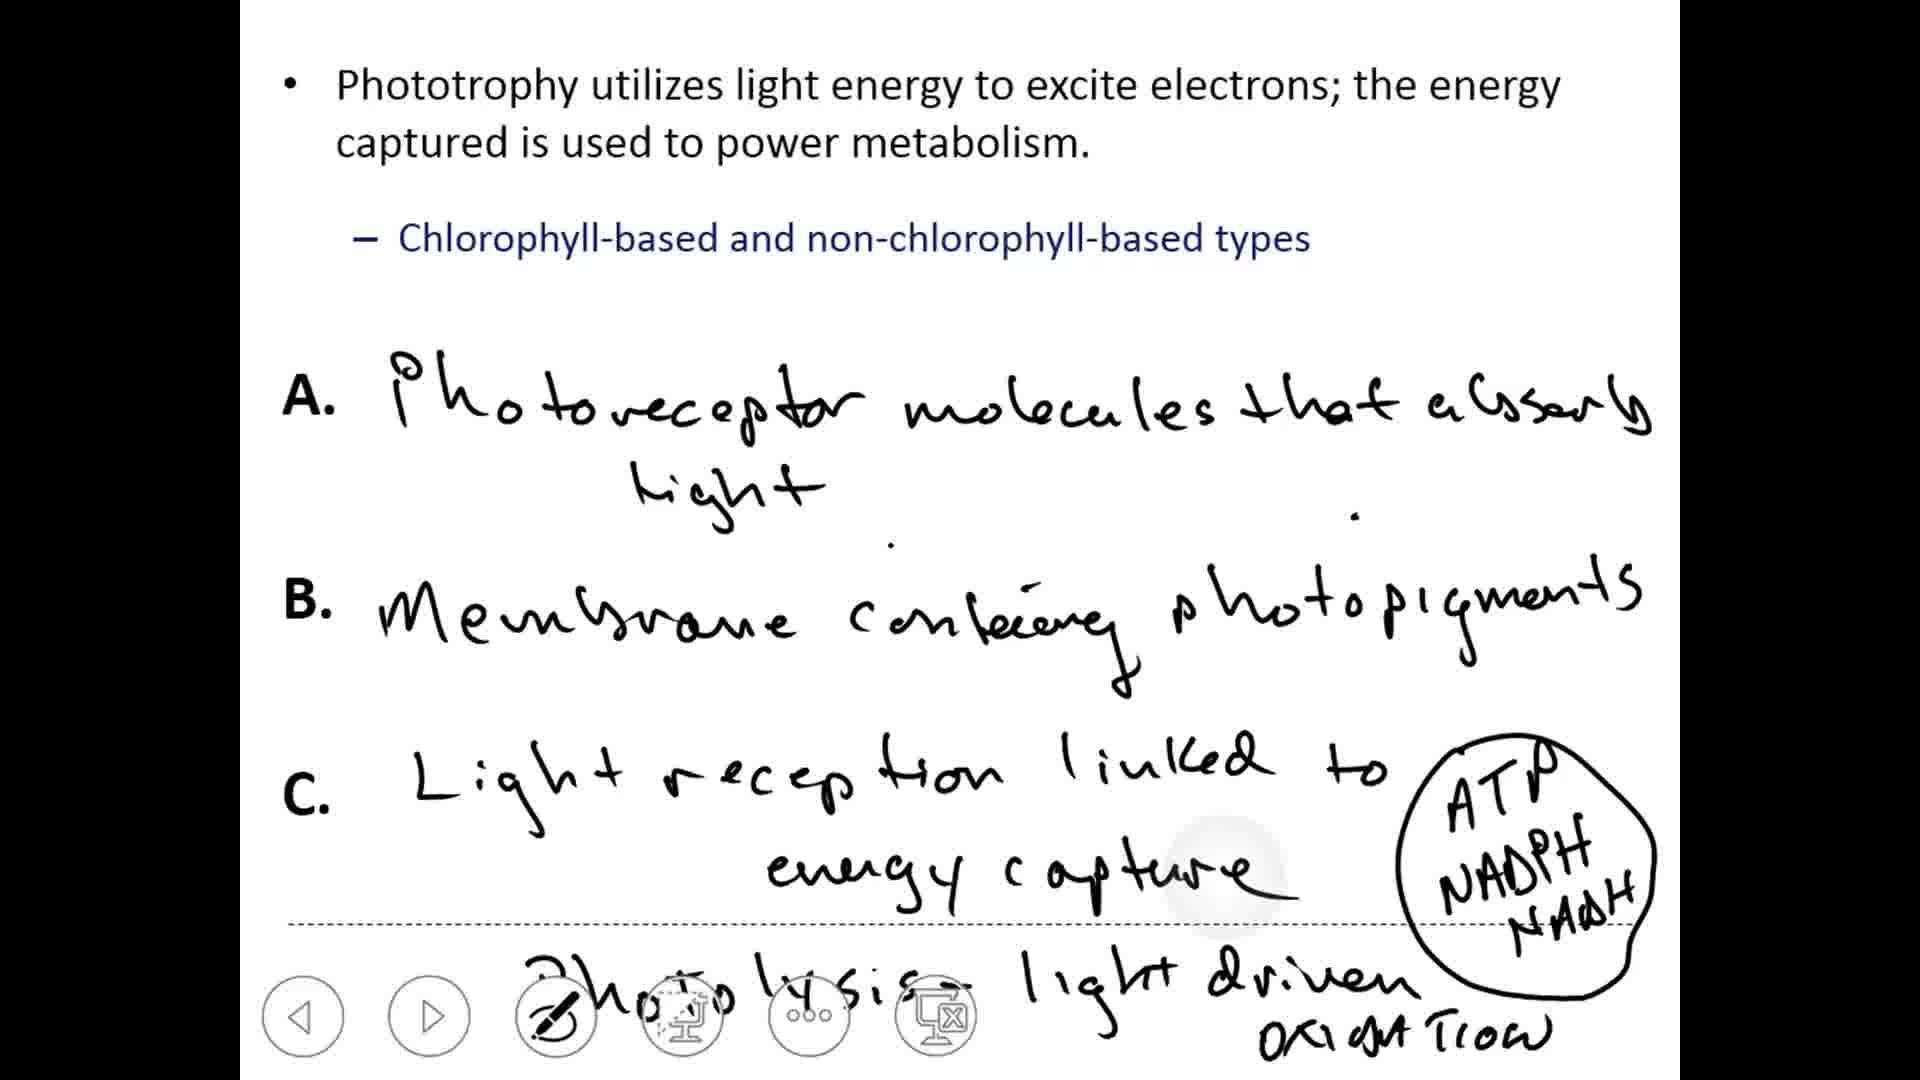 • Phototrophy utilizes light energy to excite electrons; the energy
captured is used to power metabolism.
– Chlorophyll-based and non-chlorophyll-based types
A. Photoreceptor molecules that absorb
light
B. Membrane containing photopigments
C. Light reception linked to
energy capture
ATP
NADPH
NADH
Photolysis - light driven
OXIDATION